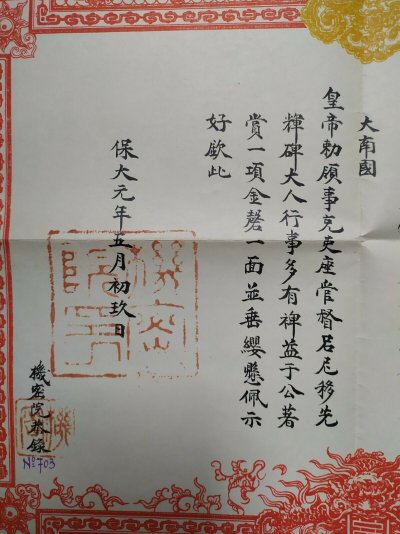 大南國
皇帝勅領事克吏座官督居尼移先
輝碑大人行事多有裨益于公著
賞一項金磬一面並垂纓懸佩示
好欽此
保大元年五月初玖日
機密院印
機密院恭錄
№703